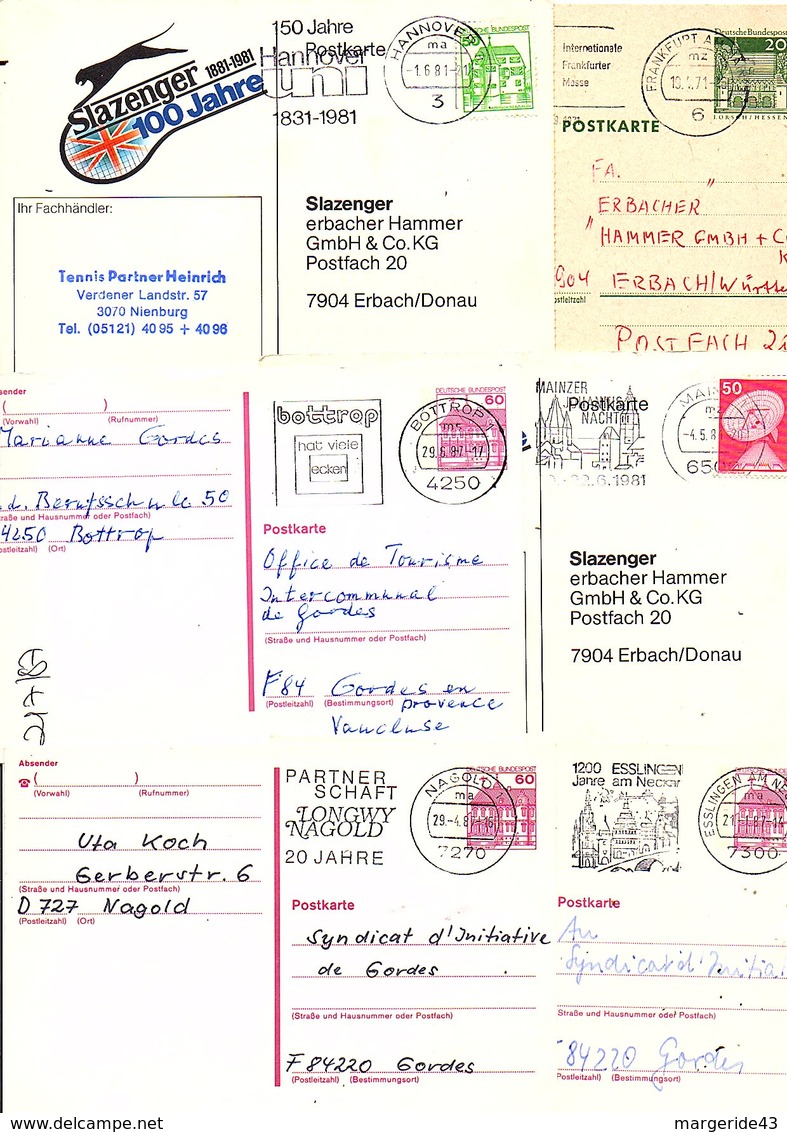 Slazenger 1881-1981
100 Jahre
150 Jahre
Postkarte
Hannover
uni
1831-1981
HANNOVER
ma
-1.6.81-21
3
DEUTSCHE BUNDESPOST
Ihr Fachhändler:
Tennis Partner Heinrich
Verdener Landstr. 57
3070 Nienburg
Tel. (05121) 40 95 + 40 96
Slazenger
erbacher Hammer
GmbH & Co. KG
Postfach 20
7904 Erbach/Donau
Internationale
Frankfurter
Messe
FRANKFURT
mz
6
Deutsche Bundespost
20
LORSCH/HESSEN
POSTKARTE
FA.
ERBACHER
"HAMMER GMBH + C
904 ERBACH/Württe
ostleitzahl
POSTFACH 2
bsender
( )
(Vorwahl) (Rufnummer)
Marianne Gordes
.d. Berufsschule 50
traße und Hausnummer oder Postfach)
4250 Bottrop
ostleitzahl) (Ort)
bottrop
hat viele
ecken
BOTTROP 1
ms
29.6.87-17
4250
DEUTSCHE BUNDESPOST
60
Postkarte
Office de Tourisme
Intercommunal
de Gordes
(Straße und Hausnummer oder Postfach)
F84 Gordes en
(Postleitzahl) (Bestimmungsort) provence
Vaucluse
MAINZER
JOHANNIS
NACHT
Postkarte
6.1981
MAIN
mz
-4.5.8
650
50
Slazenger
erbacher Hammer
GmbH & Co. KG
Postfach 20
7904 Erbach/Donau
Absender
( )
(Vorwahl) (Rufnummer)
Uta Koch
Gerberstr. 6
(Straße und Hausnummer oder Postfach)
D 727 Nagold
(Postleitzahl) (Ort)
PARTNER
SCHAFT
LONGWY
NAGOLD
20 JAHRE
NAGOLD 1
ma
29.-4.87-16
7270
DEUTSCHE BUNDESPOST
60
Postkarte
Syndicat d'Initiative
de Gordes
(Straße und Hausnummer oder Postfach)
F 84220 Gordes
(Postleitzahl) (Bestimmungsort)
1200 ESSLINGEN
Jahre am Neckar
ESSLINGEN AM NE
ma
7300
Postkarte
An
Syndicat d'Initia
(Straße und Hausnummer oder Postfach)
84220 Gordes
Postleitzahl) (Bestimmungsort)
margeride43